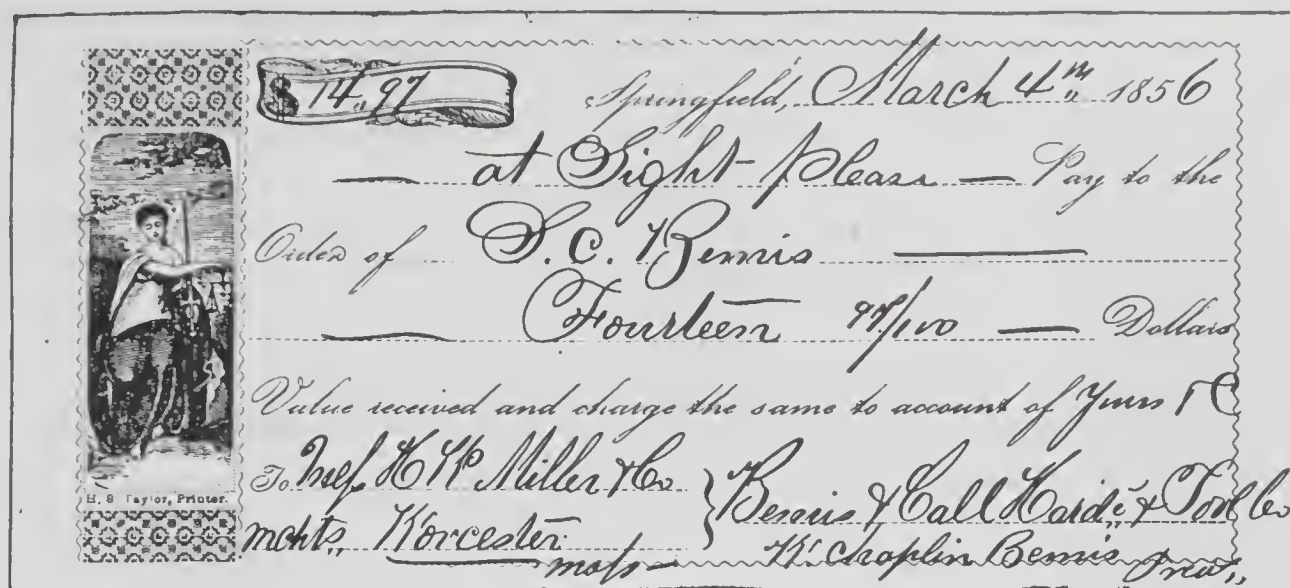 $ 14.,97
Springfield, March 4th 1856
at Sight please Pay to the
Order of S. C. Bemis
Fourteen 97/100 Dollars
Value received and charge the same to account of Yours
To Mess H W Miller & Co
mchts., Worcester
mass
Bemis & Call Hardw. & Tool Co
W. Chaplin Bemis Treas.,
H. S. Taylor, Printer.